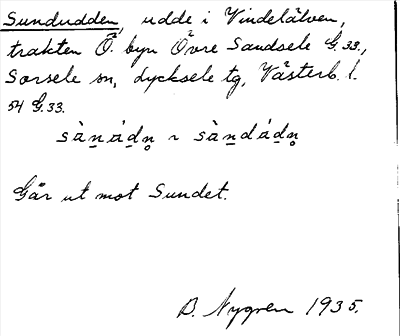 Sundudden, udde i Vindelälven,
trakten Ö. byn Övre Sandsele G.33.,
Sorsele sn, Lycksele tg, Västerb. l.
54 G.33.
sàṉád̲n̥ ~ sàṉdád̲n̥
Går ut mot Sundet.
B. Nygren 1935.